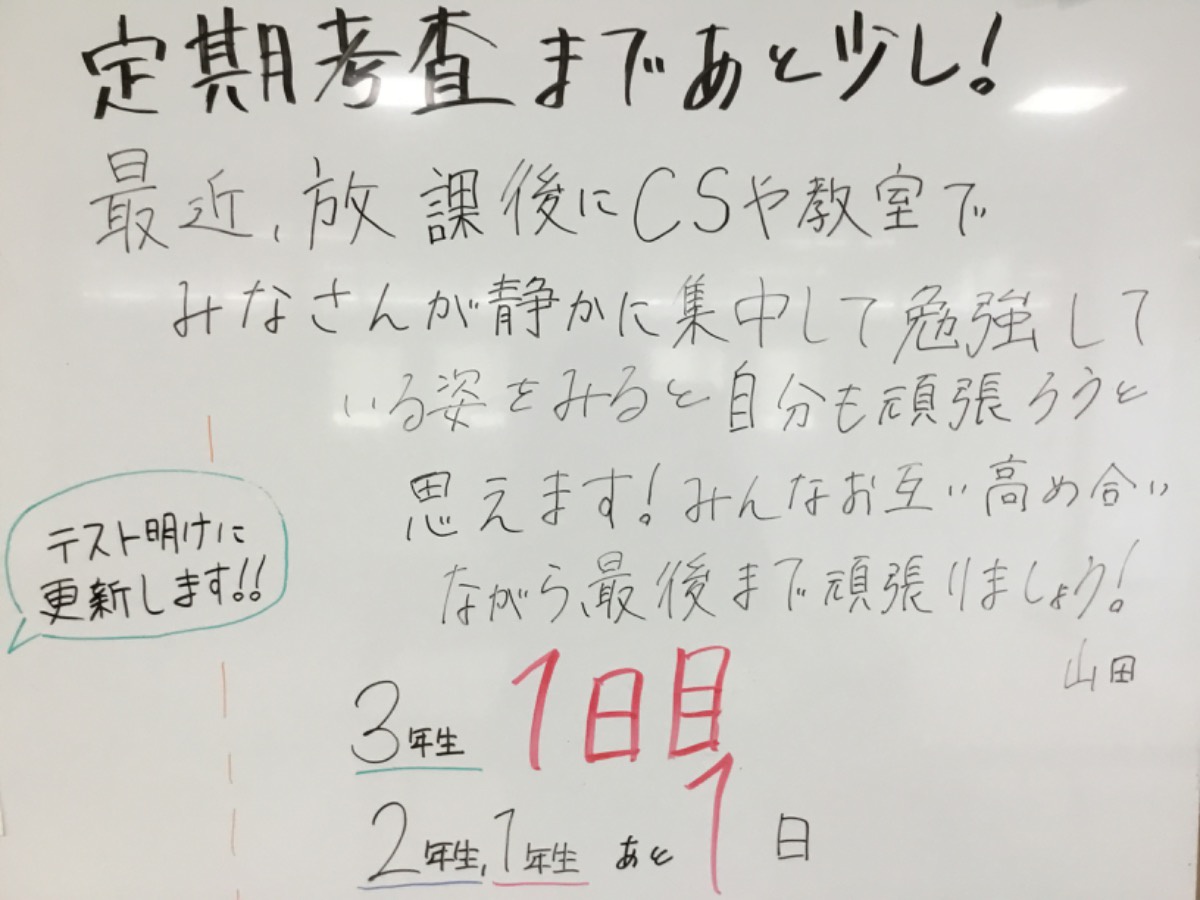 定期考査まであと少し!
最近、放課後にCSや教室で
みなさんが静かに集中して勉強して
いる姿をみると自分も頑張ろうと
思えます!みんなお互い高め合い
ながら、最後まで頑張りましょう!
山田
テスト明けに
更新します!!
3年生 1日目
2年生,1年生 あと1日